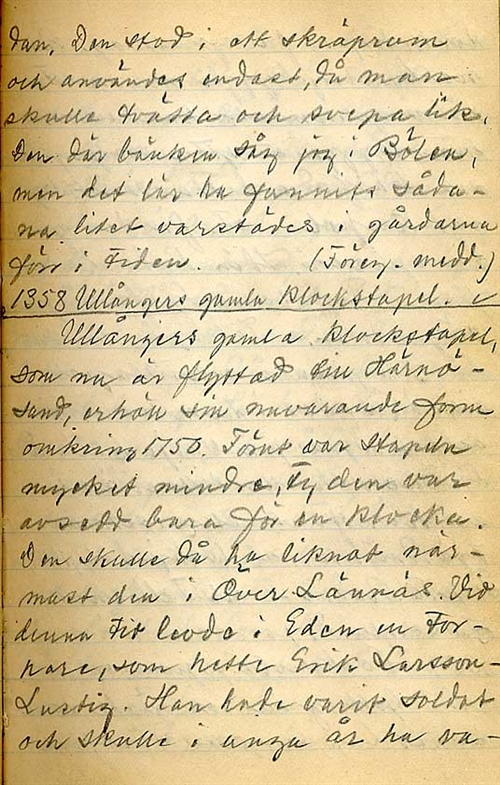 dan. Den stod i ett skräprum
och användes endast, då man
skulle tvätta och svepa lik.
Den där bänken såg jag i Bölen,
men det lär ha funnits såda-
na litet varstädes i gårdarna
förr i tiden. (Föreg. medd.)
1358 Ullångers gamla klockstapel.
Ullångers gamla klockstapel,
som nu är flyttad till Härnö-
sand, erhöll sin nuvarande form
omkring 1750. Förut var stapeln
mycket mindre, ty den var
avsedd bara för en klocka.
Den skulle då ha liknat när-
mast den i Över Lännäs. Vid
denna tid levde i Eden en tor-
pare, som hette Erik Larsson-
Lustig. Han hade varit soldat
och skulle i unga år ha va-